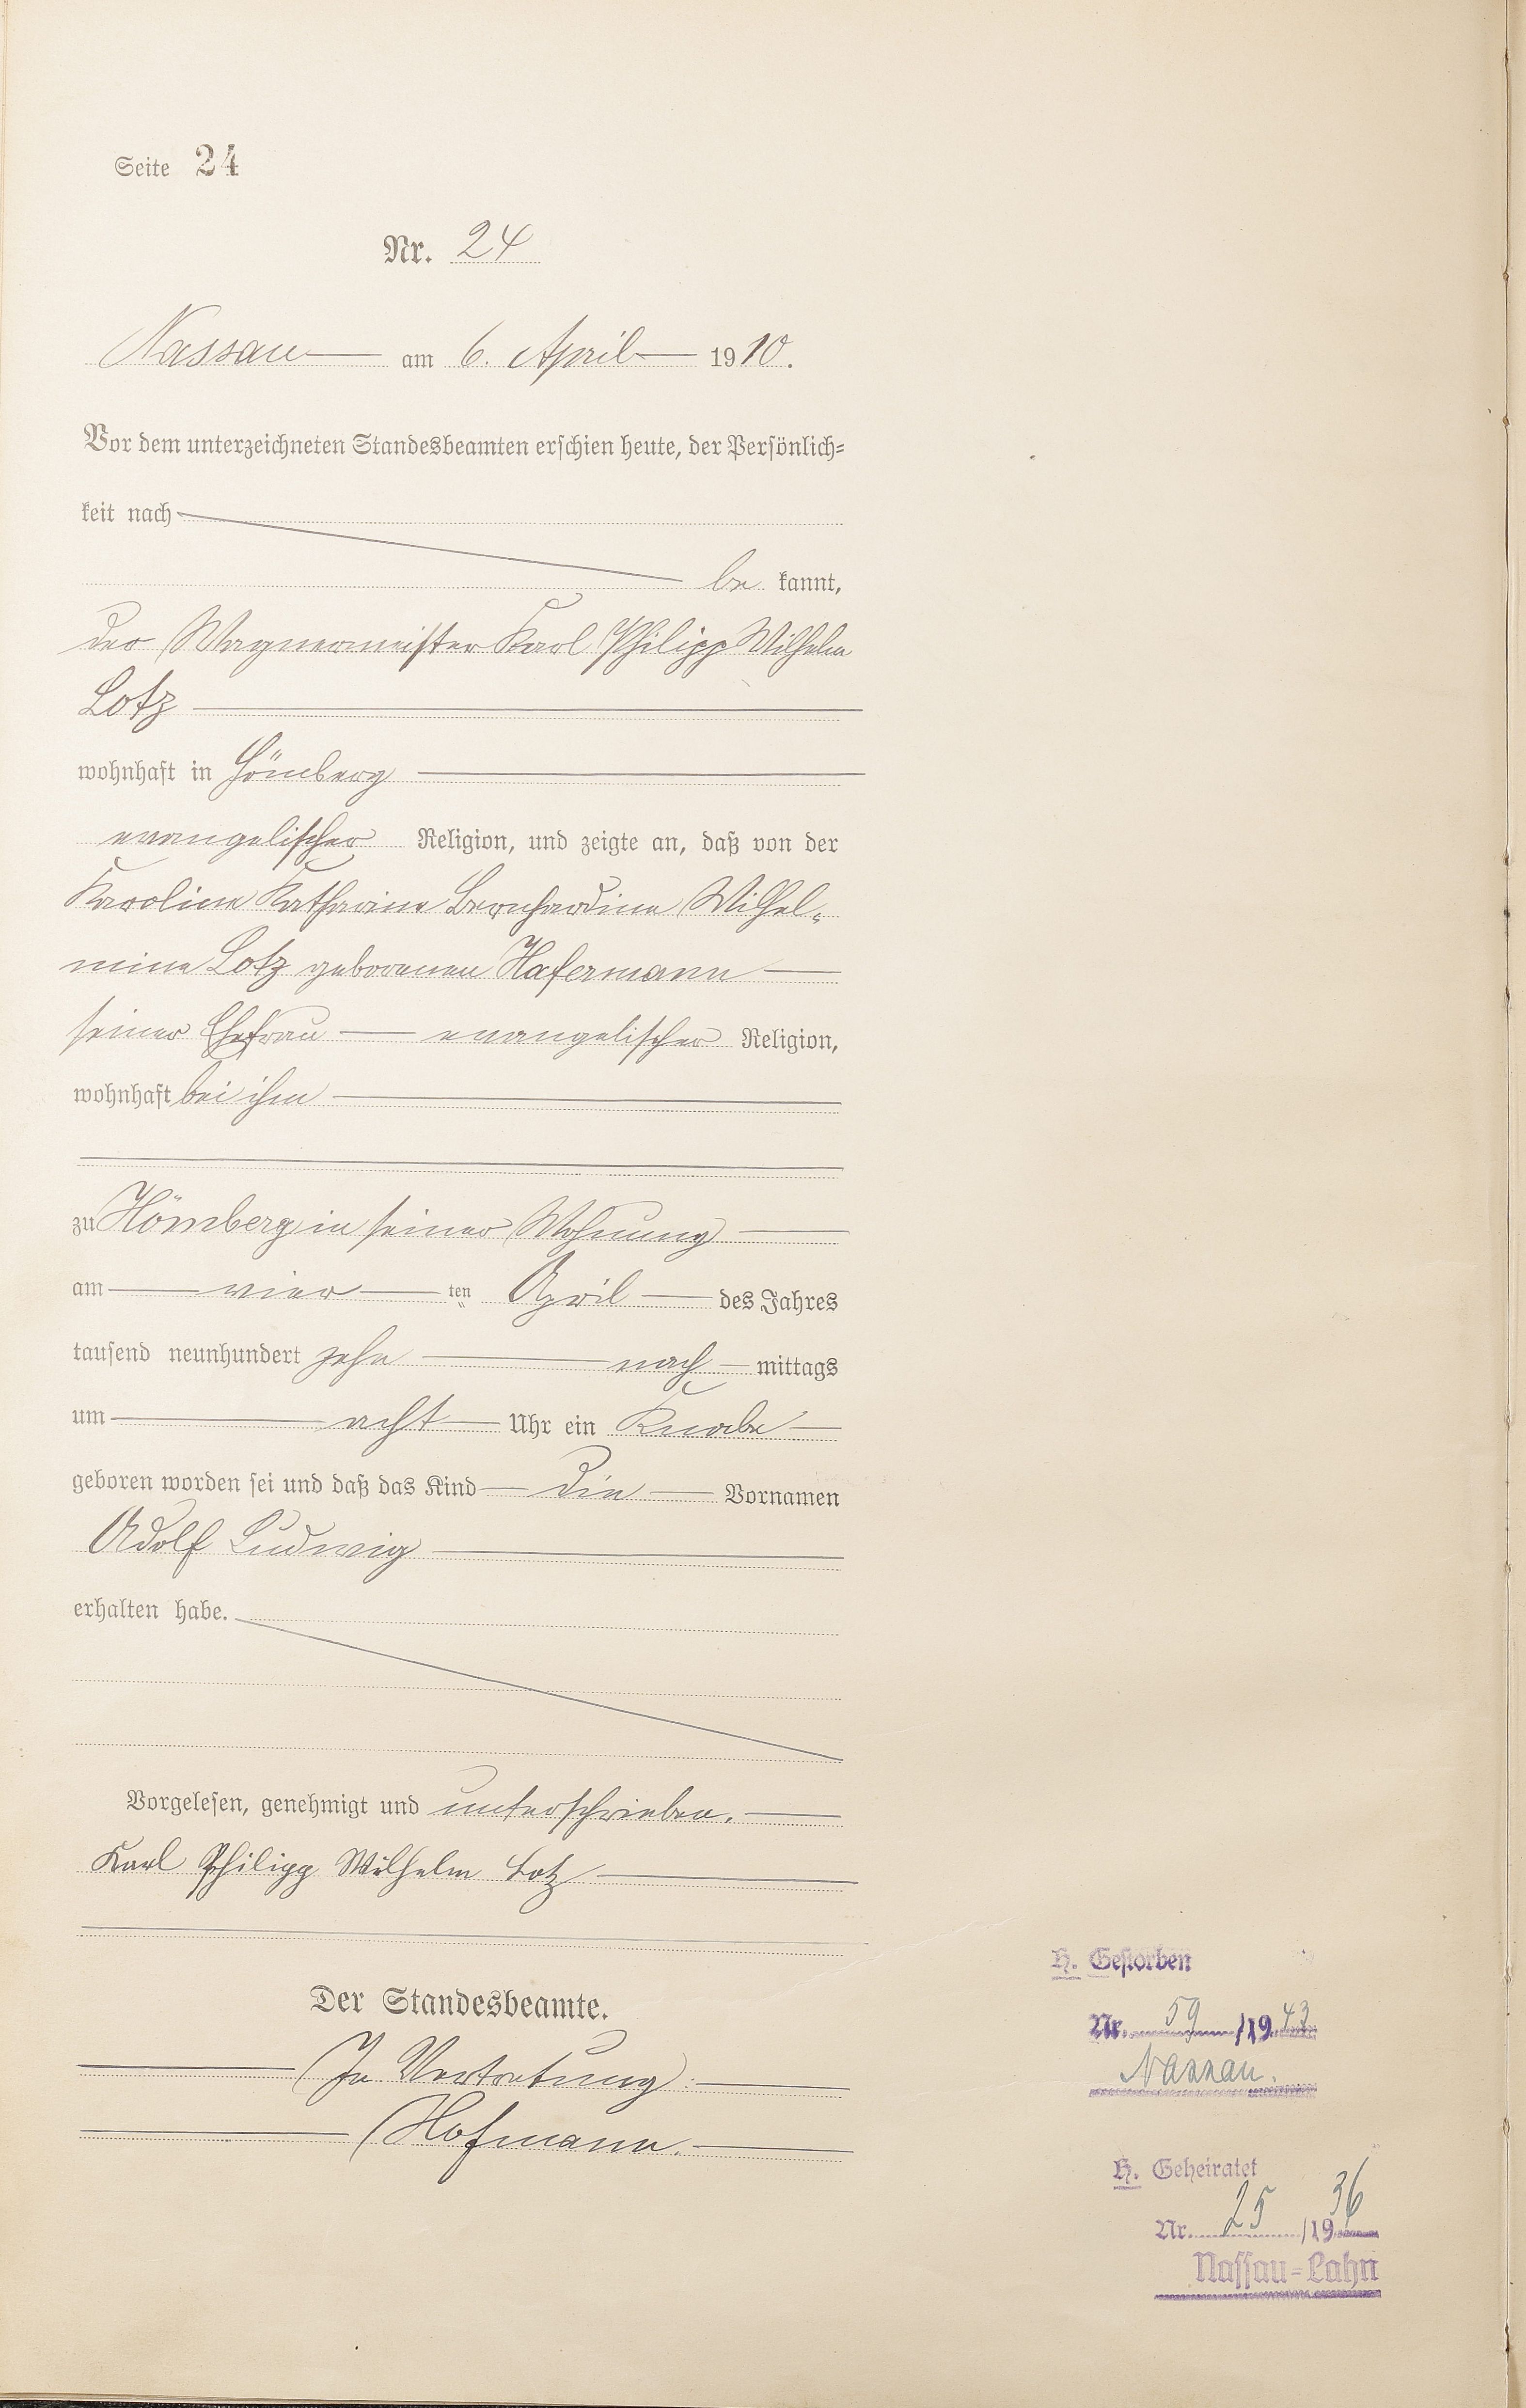 Seite 24
Nr. 24
Nassau am 6. April 1910.
Vor dem unterzeichneten Standesbeamten erschien heute, der Persönlich-
keit nach
be kannt,
der Wagnermeister Karl Philipp Wilhelm
Lotz
wohnhaft in Hömberg
evangelischer Religion, und zeigte an, daß von der
Karoline Katharine Bernhardine Wilhel-
mine Lotz geborenen Hafermann
seiner Ehefrau evangelischer Religion,
wohnhaft bei ihm
zu Hömberg in seiner Wohnung
am vier ten April des Jahres
tausend neunhundert zehn nach mittags
um acht Uhr ein Knabe
geboren worden sei und daß das Kind die Vornamen
Adolf Ludwig
erhalten habe.
Vorgelesen, genehmigt und unterschrieben.
Karl Philipp Wilhelm Lotz
Der Standesbeamte.
In Vertretung:
Hofmann.
H. Gestorben
Nr. 59 /1943
Nassau.
H. Geheiratet
Nr. 25 /1936
Nassau-Lahn